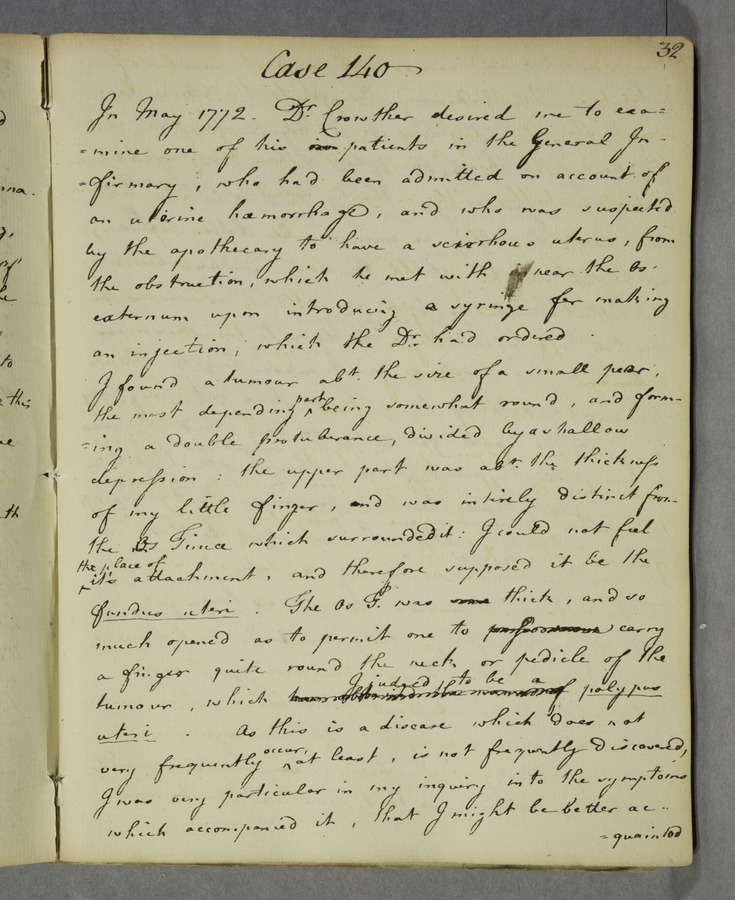 32
Case 140
In May 1772. Dr. Crowther desired me to exa=
=mine one of his patients in the General In-
=firmary, who had been admitted on account of
an uterine hæmorrhage, and who was suspected
by the apothecary to have a scirrhous uterus, from
the obstruction, which he met with near the Os
externum upon introducing a syringe for making
an injection, which the Dr. had ordered.
I found a tumour abt. the size of a small pear,
the most depending part being somewhat round, and form-
=ing a double protuberance, divided by a shallow
depression: the upper part was abt. the thickness
of my little finger, and was intirely distinct from
the Os Tincæ which surrounded it: I could not feel
the place of
it's attachment, and therefore supposed it be the
fundus uteri. The Os T. was thick, and so
much opened as to permit one to carry
a finger quite round the neck or pedicle of the
I judged to be a
tumour, which polypus
uteri. As this is a disease which does not
very frequently occur, at least, is not frequently discovered,
I was very particular in my inquiry into the symptoms
which accompanied it, that I might be better ac-
=quainted